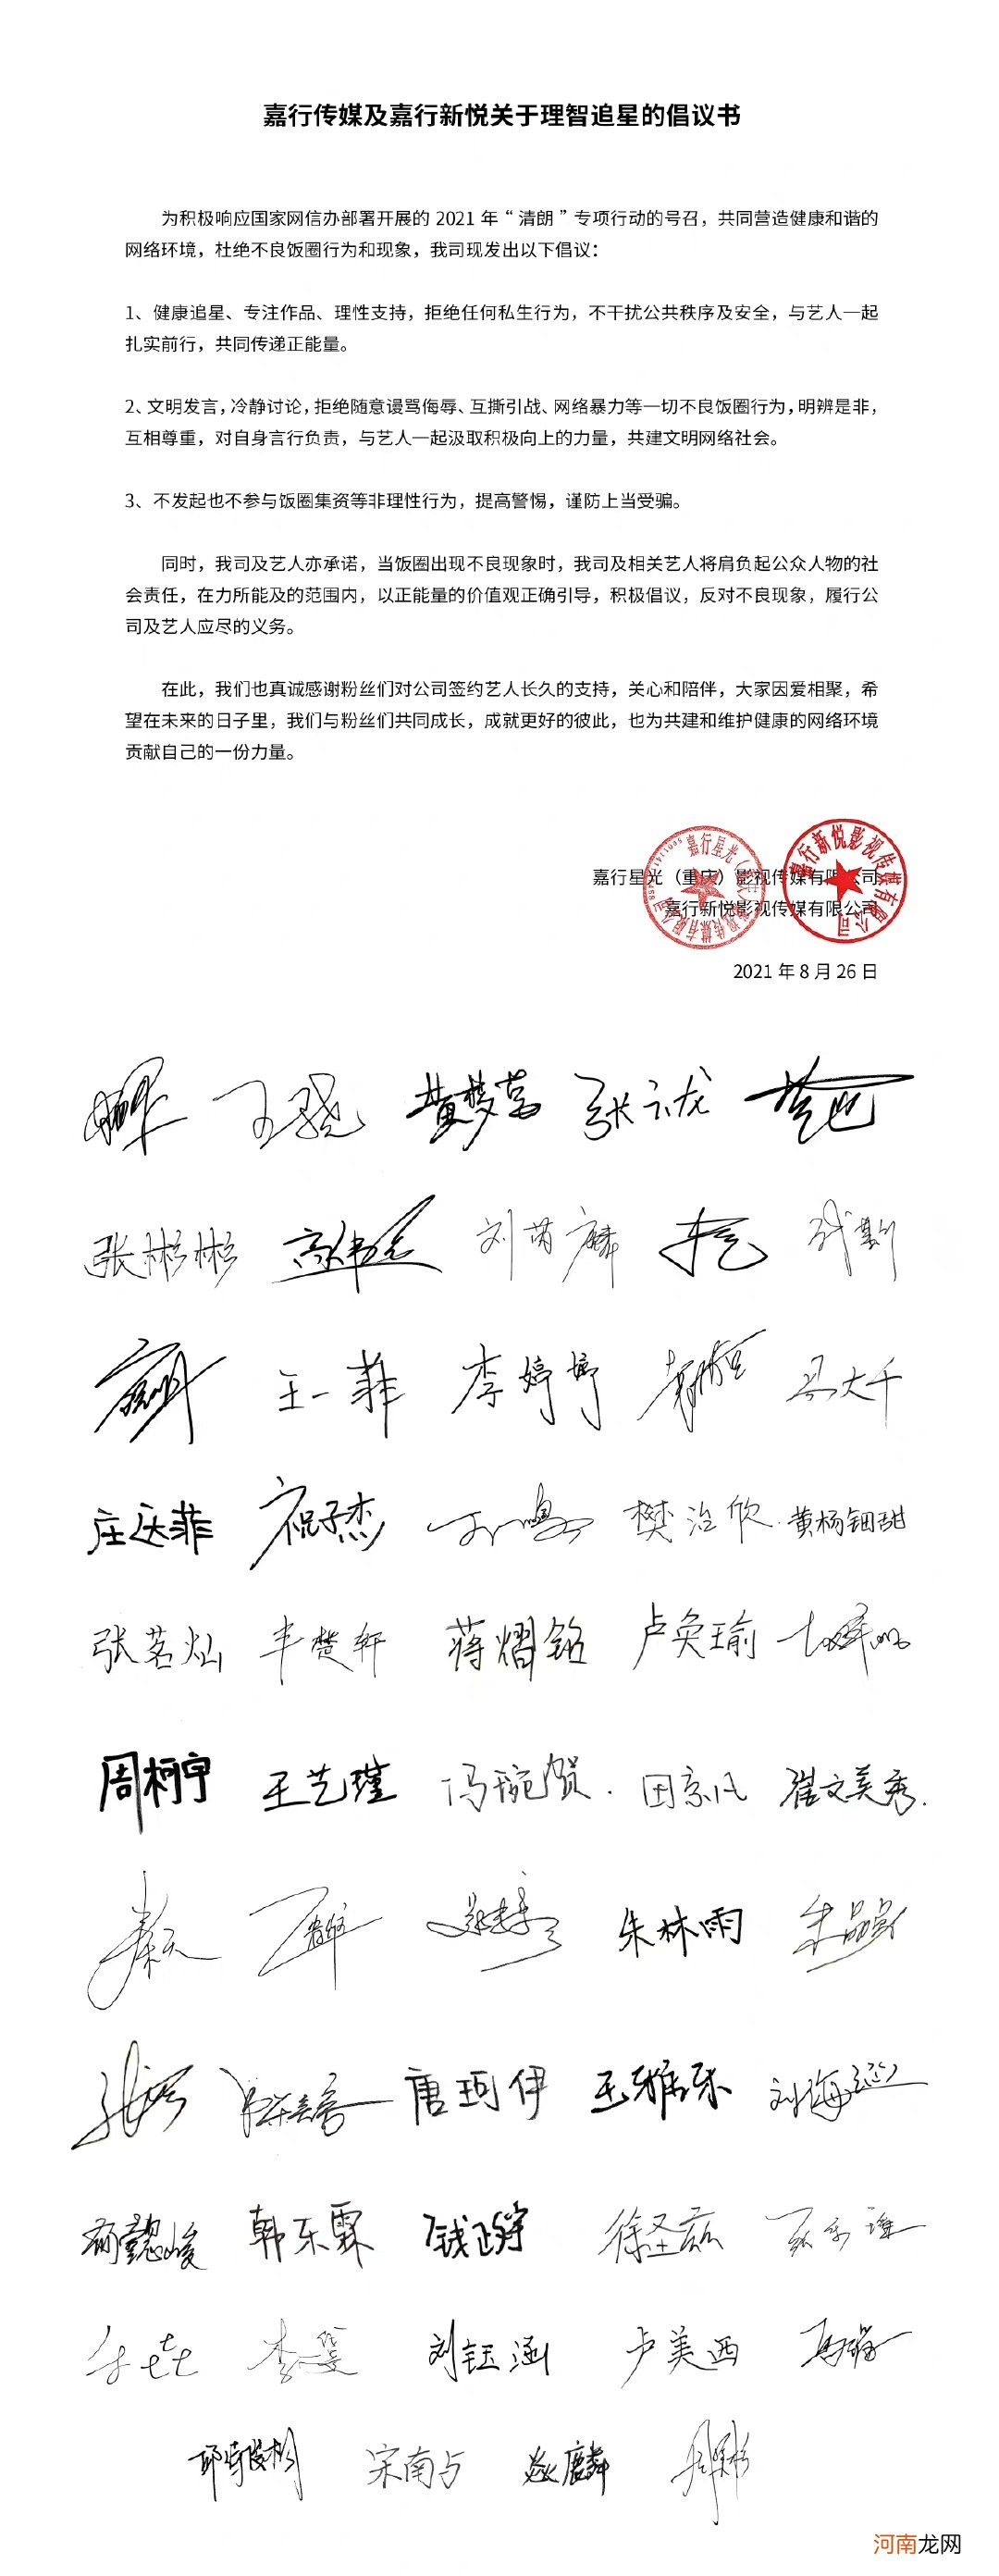 嘉行传媒及嘉行新悦关于理智追星的倡议书
为积极响应国家网信办部署开展的 2021 年“清朗”专项行动的号召，共同营造健康和谐的
网络环境，杜绝不良饭圈行为和现象，我司现发出以下倡议：
1、健康追星、专注作品、理性支持，拒绝任何私生行为，不干扰公共秩序及安全，与艺人一起
扎实前行，共同传递正能量。
2、文明发言，冷静讨论，拒绝随意谩骂侮辱、互撕引战、网络暴力等一切不良饭圈行为，明辨是非，
互相尊重，对自身言行负责，与艺人一起汲取积极向上的力量，共建文明网络社会。
3、不发起也不参与饭圈集资等非理性行为，提高警惕，谨防上当受骗。
同时，我司及艺人亦承诺，当饭圈出现不良现象时，我司及相关艺人将肩负起公众人物的社
会责任，在力所能及的范围内，以正能量的价值观正确引导，积极倡议，反对不良现象，履行公
司及艺人应尽的义务。
在此，我们也真诚感谢粉丝们对公司签约艺人长久的支持，关心和陪伴，大家因爱相聚，希
望在未来的日子里，我们与粉丝们共同成长，成就更好的彼此，也为共建和维护健康的网络环境
贡献自己的一份力量。
嘉行星光（重庆）影视传媒有限公司
嘉行新悦影视传媒有限公司
2021 年 8 月 26 日
王骁 黄梦莹 张云龙
张彬彬 高伟光 刘芮麟
王一菲 李婷婷 马大千
庄达菲 祝子杰 樊治欣 黄杨钿甜
张茗灿 丰楚轩 蒋熠铭 卢奂瑜
周柯宇 王艺瑾 冯琬贺 田京凡 崔文美秀
朱林雨
唐珂伊 王雅乐 刘海
韩东霖 钱正婷 徐圣兹
刘钰涵 卢美西
宋南兮 焱麟
河南龙网